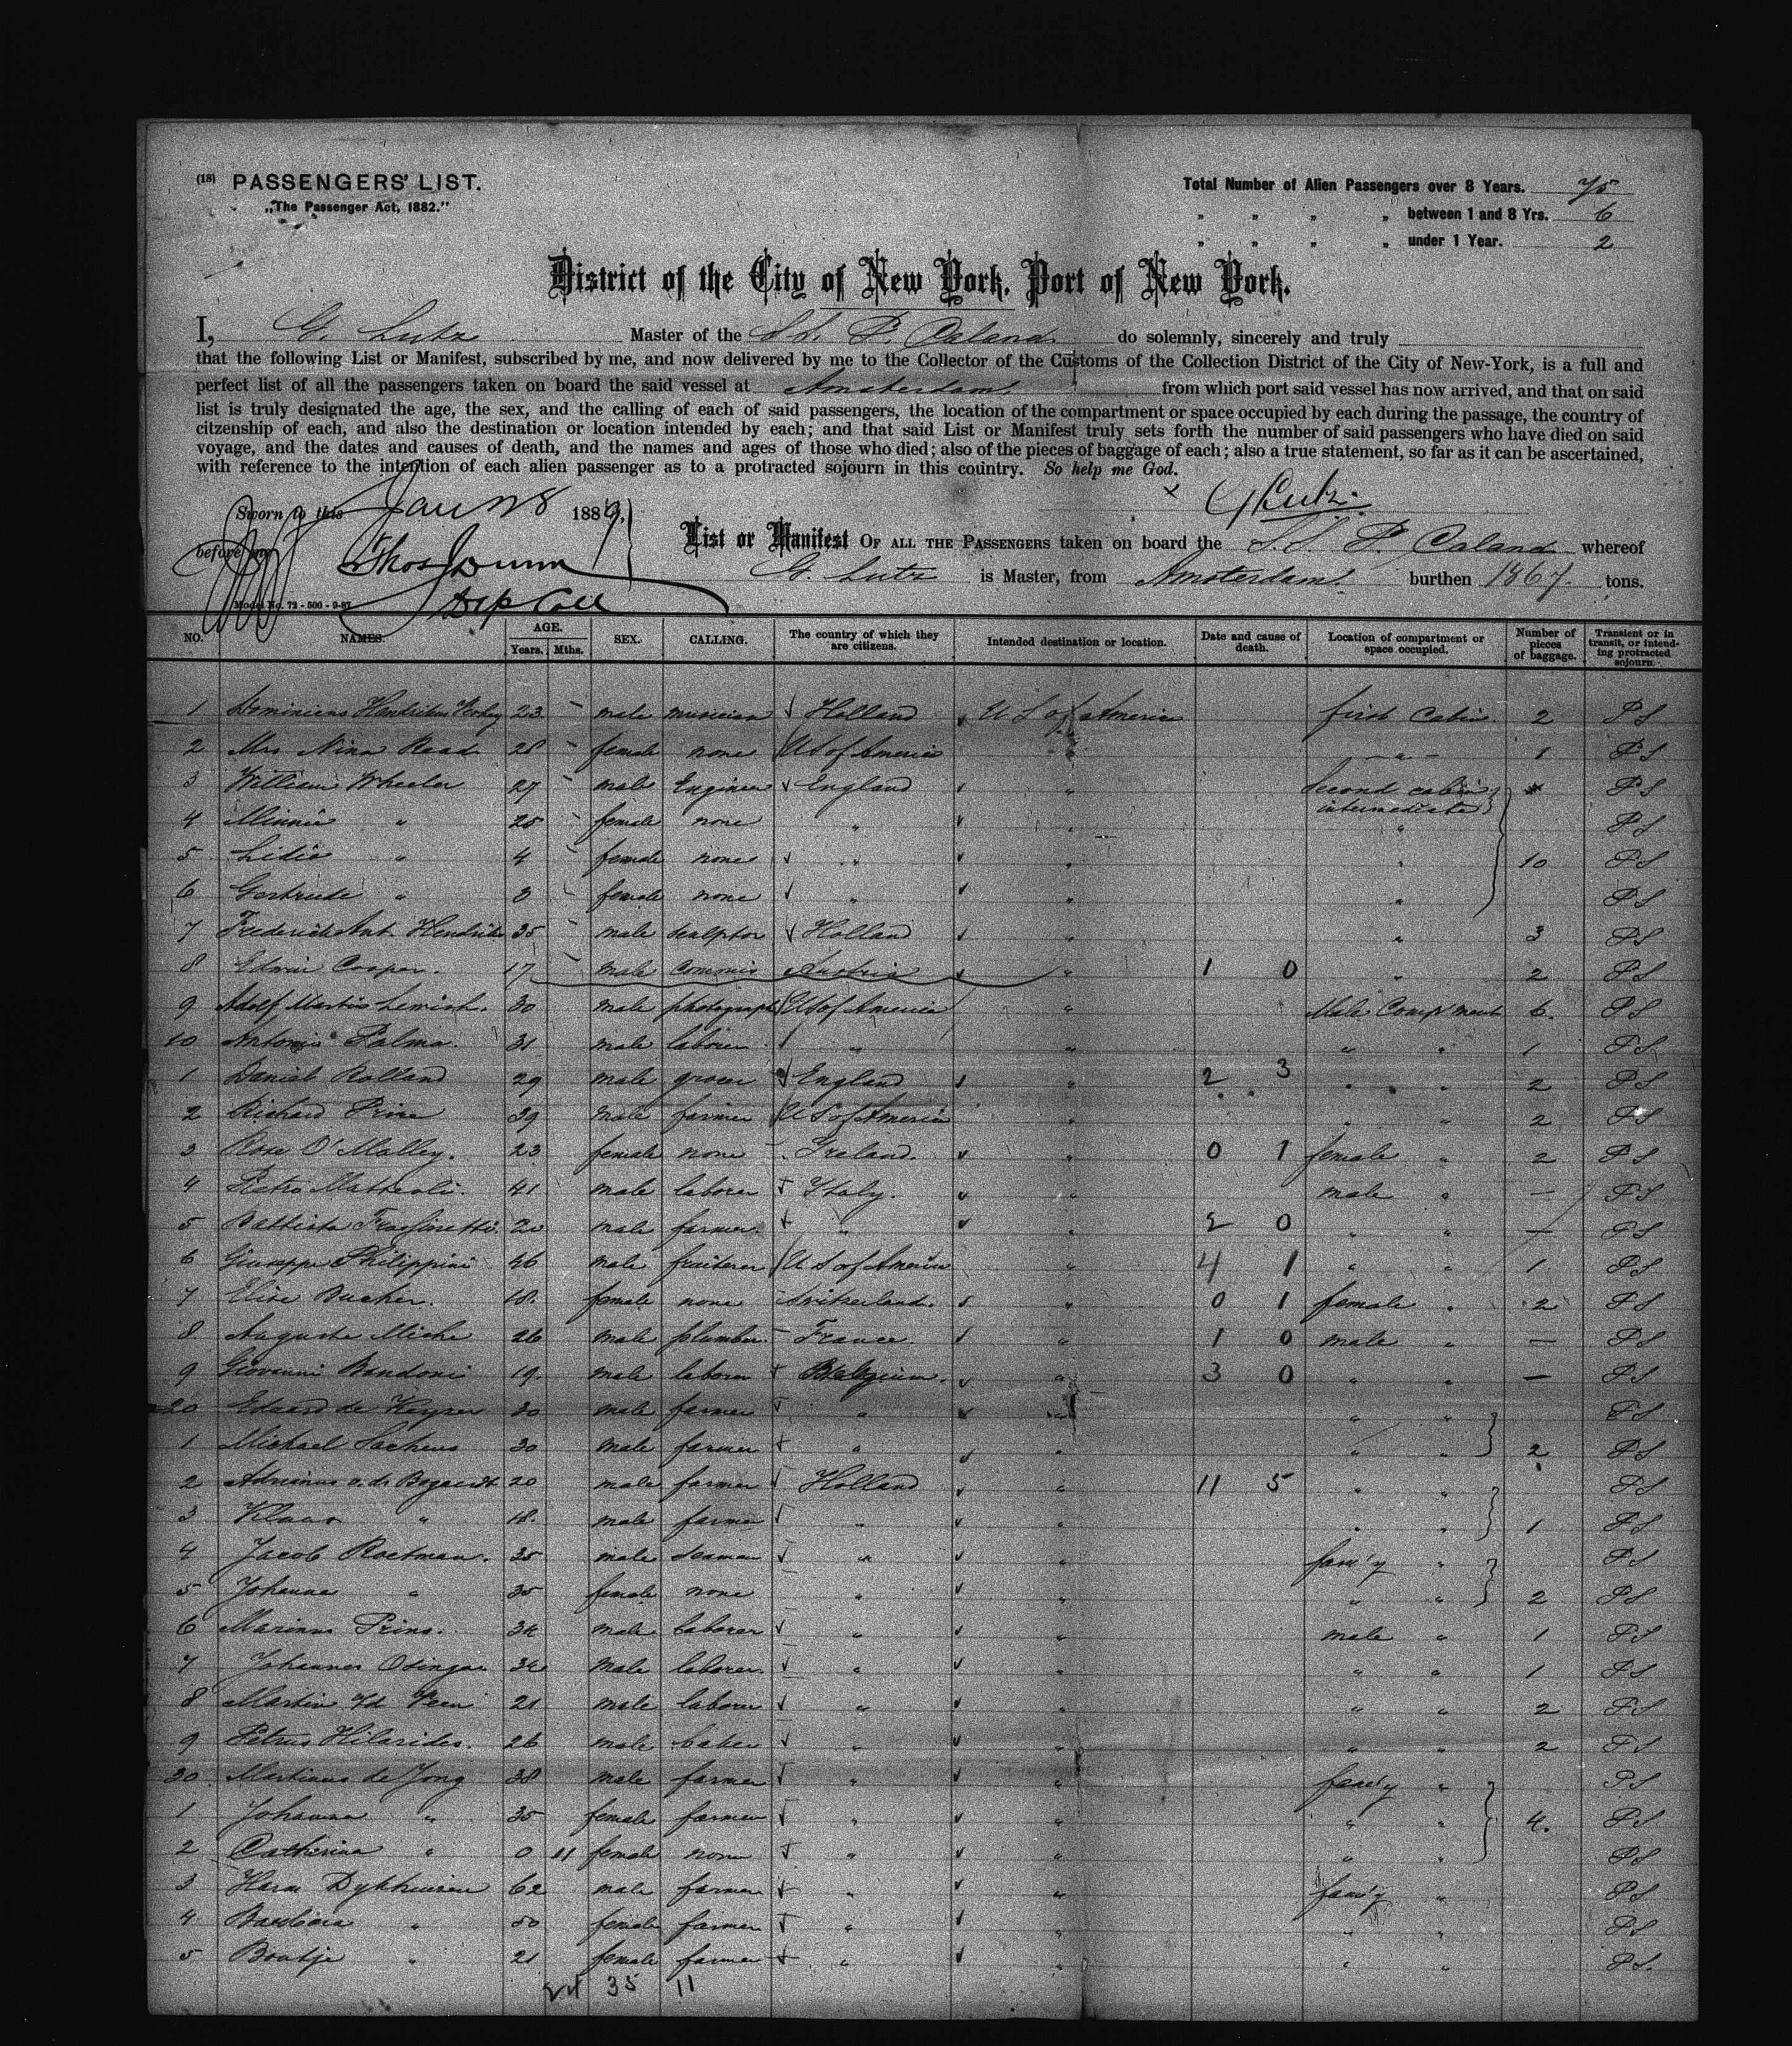 (18) PASSENGERS' LIST.
„The Passenger Act, 1882."
Total Number of Alien Passengers over 8 Years. 75
„ „ „ „ between 1 and 8 Yrs. 6
„ „ „ „ under 1 Year. 2
District of the City of New York, Port of New York.
I, G. Lutz Master of the S.S. P. Caland do solemnly, sincerely and truly
that the following List or Manifest, subscribed by me, and now delivered by me to the Collector of the Customs of the Collection District of the City of New-York, is a full and
perfect list of all the passengers taken on board the said vessel at Amsterdam from which port said vessel has now arrived, and that on said
list is truly designated the age, the sex, and the calling of each of said passengers, the location of the compartment or space occupied by each during the passage, the country of
citzenship of each, and also the destination or location intended by each; and that said List or Manifest truly sets forth the number of said passengers who have died on said
voyage, and the dates and causes of death, and the names and ages of those who died; also of the pieces of baggage of each; also a true statement, so far as it can be ascertained,
with reference to the intention of each alien passenger as to a protracted sojourn in this country. So help me God.
x G Lutz
Sworn to this Jany 28 1889.
before me Thos Dunn
Dep Coll
List or Manifest OF ALL THE PASSENGERS taken on board the S.S. P. Caland whereof
G. Lutz is Master, from Amsterdam burthen 1867 tons.
Model No. 72 - 500 - 9-87
NO. NAMES. AGE. Years. Mths. SEX. CALLING. The country of which they are citizens. Intended destination or location. Date and cause of death. Location of compartment or space occupied. Number of pieces of baggage. Transient or in transit, or intending protracted sojourn
1 Dominicus Hendrikus 23 - male musician Holland U S of America first Cabin 2 PS
2 Mrs Nina Read 28 - female none U S of America " " 1 PS
3 William Wheeler 27 - male Engineer England " Second cabin intermediate PS
4 Minnie " 25 - female none " " " PS
5 Lidia " 4 - female none " " " 10 PS
6 Gertrude " 0 - female none " " " PS
7 Frederick Ant. Hendriks 35 - male sculptor Holland " " 3 PS
8 Edwin Cooper. 17 - male commis Austria " 1 0 " 2 PS
9 Adolf Martin 30 male photograph U S of America " Male Comp'ment 6. PS
10 Antonio Palma. 31 male laborer " " " " 1 PS
1 Daniel Rolland 29 male grocer England " 2 3 " " 2 PS
2 Richard Prise 39 male farmer U S of America " " " 2 PS
3 Rose O'Malley. 23 female none Ireland. " 0 1 female " 2 PS
4 Pietro Matteoli. 41 male laborer Italy. " male " - PS
5 Battista 20 male farmer. " " 2 0 " " - PS
6 Giuseppe Philippini 46 male fruiterer U S of America " 4 1 " " 1 PS
7 Elise Bucher. 18. female none Switzerland. " 0 1 female " 2 PS
8 Auguste Miche 26 male plumber France. " 1 0 male " - PS
9 Giovanni Bandoni 19. male laborer Belgium. " 3 0 " " - PS
20 Eduard de Keyser 30 male farmer " " " " PS
1 Michael 30 male farmer " " " " 2 PS
2 Adrianus v. de Bogaerdt 20 male farmer Holland " 11 5 " " PS
3 Klaas " 18. male farmer " " " " 1 PS
4 Jacob Roetman. 35 male seaman " " fam'y " PS
5 Johanna " 35 female none " " " " 2 PS
6 Marinus Prins. 34 male laborer " " male " 1 PS
7 Johannes Osinga 34 male laborer. " " " " 1 PS
8 Martin v/d Veen 21 male laborer " " " " 2 PS
9 Petrus Hilarides. 26 male baker " " " " 2 PS
30. Martinus de Jong 38 male farmer " " fam'y " PS
1 Johanna " 35 female farmer " " " " 4. PS
2 Catherina " 0 11 female none " " " " PS
3 Harm Dykhuizen 62 male farmer " " fam'y " PS
4 Barbara " 50 female farmer " " " " PS
5 Boukje " 21 female farmer " " " " PS.
24 35 11